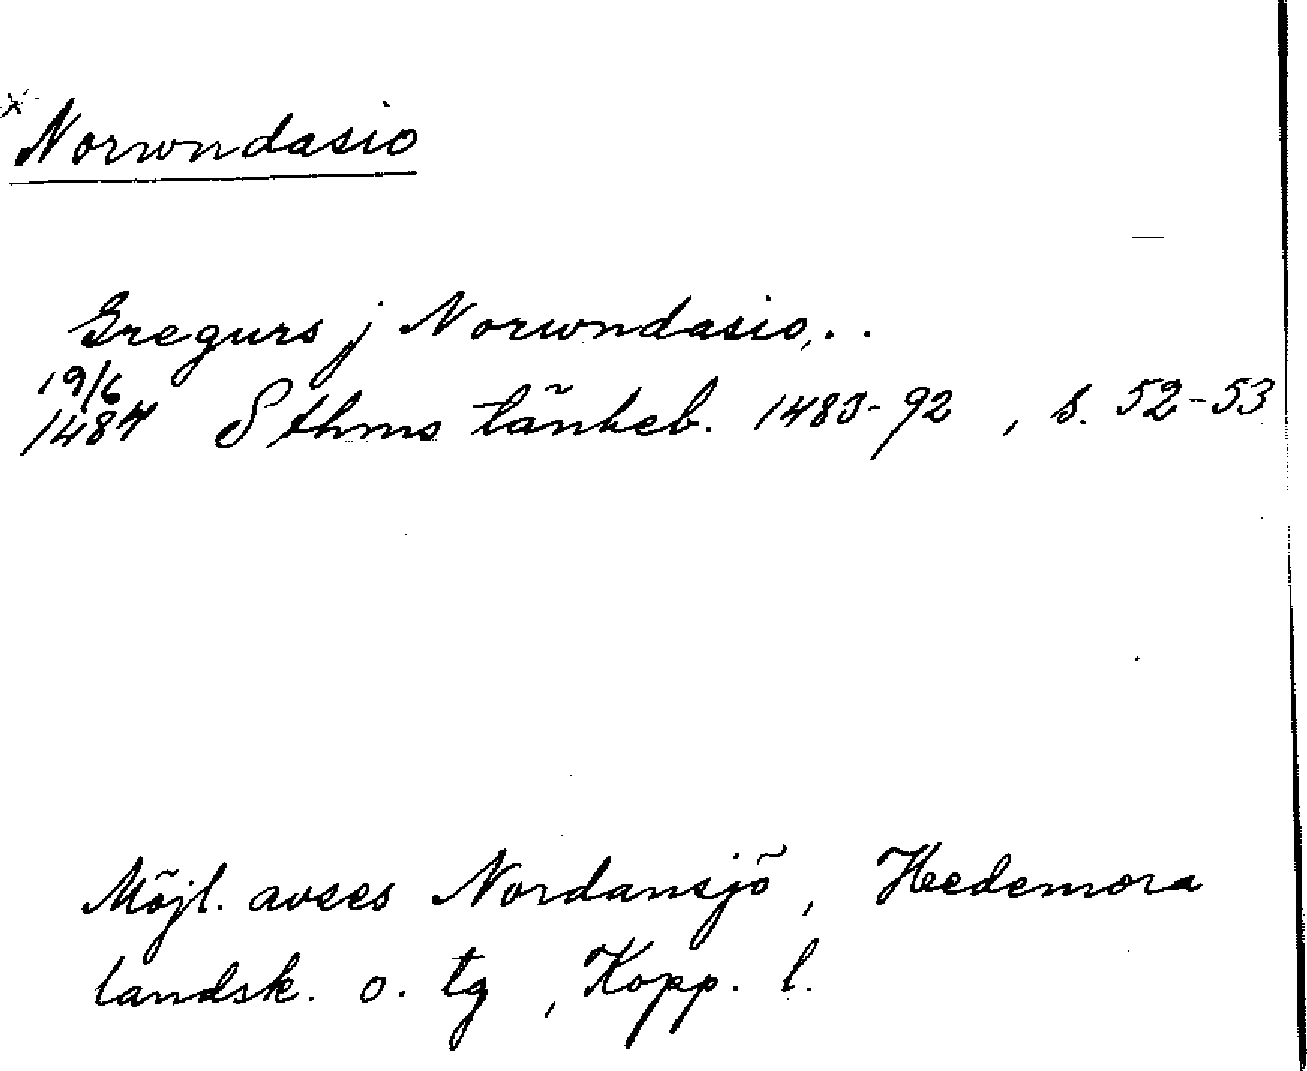 x Norwndasio
Gregurs j Norwndasio, . .
19/6
1484 Sthms tänkeb. 1483-92, s. 52-53
Möjl. avses Nordansjö, Hedemora
landsk. o. tg, Kopp. l.